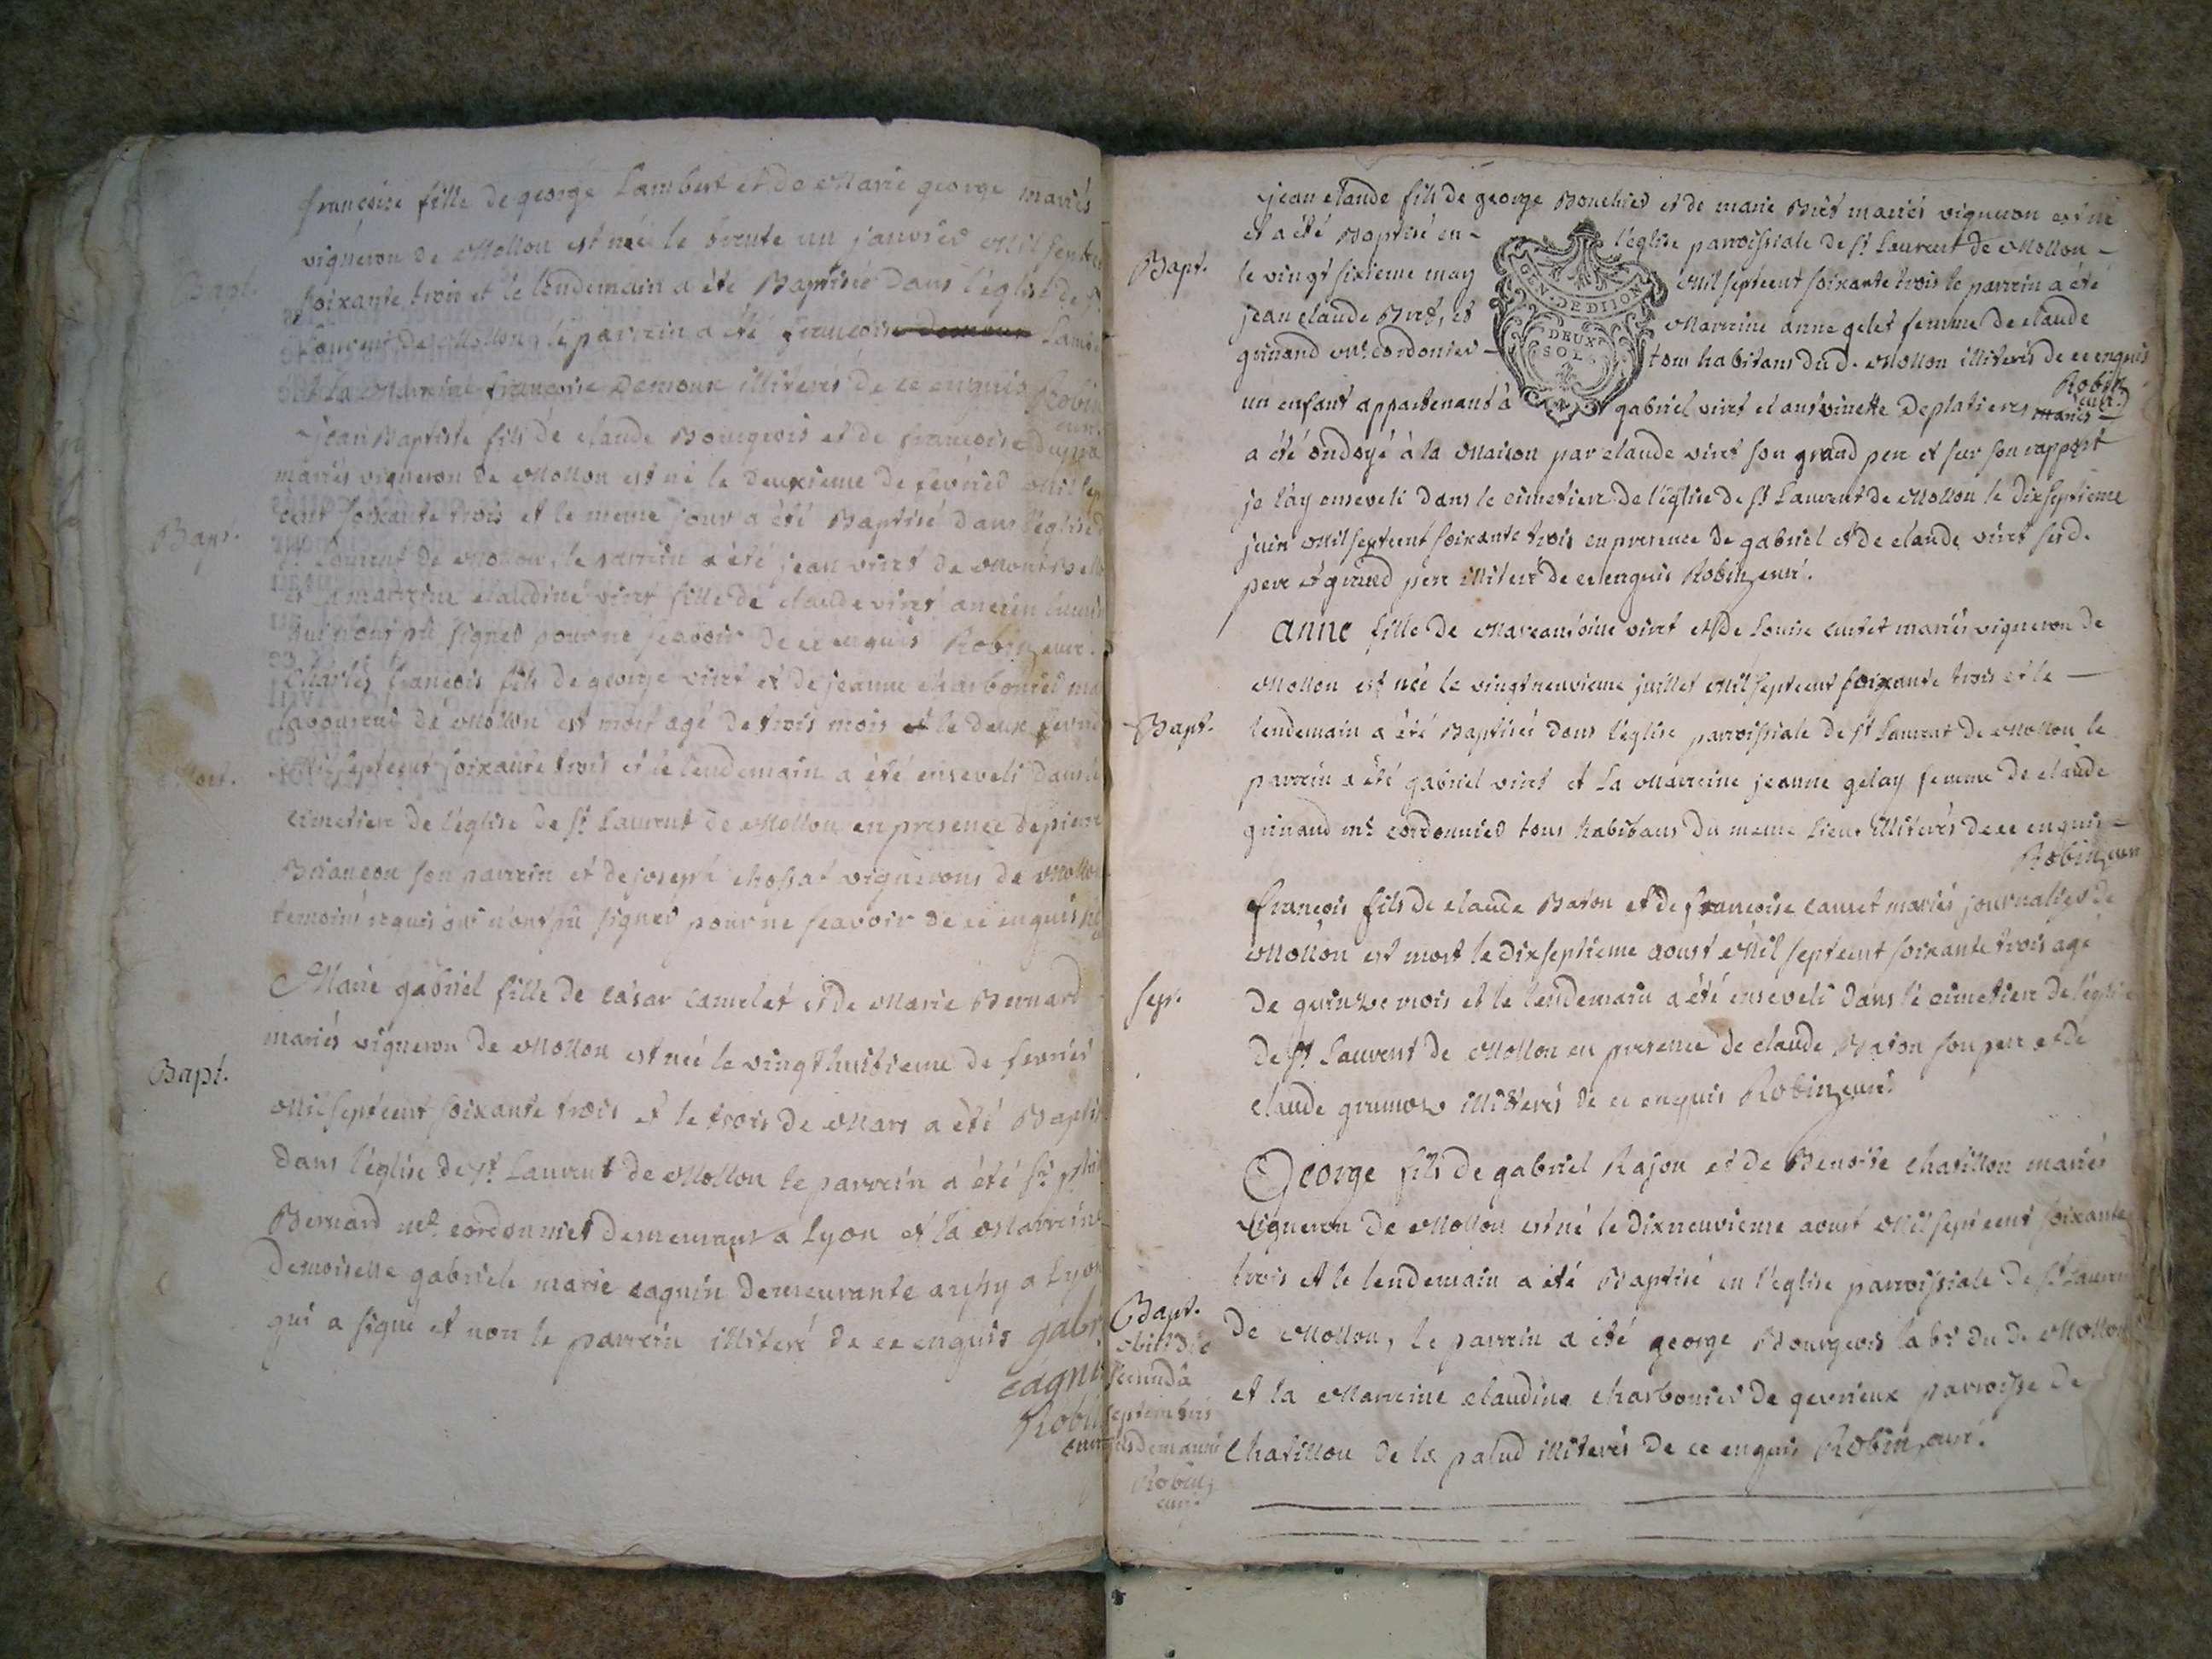 francoise fille de george Lambert et de Marie george mariés
vigneron de Mollon est née le trente un janvier Mil sept
soixante trois et le lendemain a été Baptisée dans l'église de St
Bapt.
Laurent de Mollon, le parrein a été francois demoux Lamb
et La Marreine francoise Demoux illiterés de ce enquis Robin
curé
jean Baptiste fils de claude Bourgeois et de francoise
mariés vigneron de Mollon est né le deuxieme de fevrier Mil sept
Bapt.
cent soixante trois et le meme jour a été Baptisé dans l'église
St Laurent de Mollon, le parrein a été jean viret de
et la marreine claudine viret fille de claude viret ancien
qui n'ont sû signer pour ne scavoir de ce enquis Robin, curé.
Charles francois fils de george viret et de jeanne charbonier
laboureur de Mollon est mort agé de trois mois et le deux
Mort.
Mil septcent soixante trois et le lendemain a été enseveli dans le
cimetiere de l'église de St Laurent de Mollon en presence de pierre
Briancon son parrein et de joseph chossat vignerons de Mollon
temoins requis qui n'ont sû signer pour ne scavoir de ce enquis
Marie gabriel fille de cæsar camelet et de Marie Bernard
mariés vigneron de Mollon est née le vingt huitieme de fevrier
Bapt.
Mil septcent soixante trois et le trois de Mars a été Baptis
dans l'église de St Laurent de Mollon le parrein a été Sr
Bernard me cordonnier demeurant a Lyon et la Marreine
Demoiselle gabriele marie cagnin demeurante aussy a Lyon
qui a signé et non le parrein illiteré de ce enquis gabr
cagni
Robin
curé
jean claude fils de george Bouchier et de marie Biet mariés vigneron est né
et a été Baptisé en l'eglise parroissiale de St Laurent de Mollon
Bapt.
le vingt sixieme may Mil septcent soixante trois le parrein a été
GEN. DE DIJON
DEUX SOLS
jean claude et Marreine anne gelet femme de claude
guinand me cordonier tous habitans dud. Mollon illiterés de ce enquis
Robin
curé
un enfant appartenant à gabriel viret et antoinette Deplatieres mariés
a été ondoyé à la Maison par claude viret son grand pere et sur son rapport
je l'ay enseveli dans le cimetiere de l'église de St Laurent de Mollon le dix septieme
juin Mil septcent soixante trois en presence de gabriel et de claude viret sesd.
pere et grand pere illiteré de ce enquis Robin, curé.
anne fille de Marc antoine viret et de Louise curtet mariés vigneron de
Mollon est née le vingt neuvieme juillet Mil septcent soixante trois et le
Bapt.
lendemain a été Baptisée dans l'église parroissiale de St Laurent de Mollon le
parrein a été gabriel viret et La Marreine jeanne gelay femme de claude
guinand me cordonnier tous habitans du meme Lieu illiterés de ce enquis
Robin, curé
françois fils de claude Baton et de françoise cauret mariés journalier de
Mollon est mort le dix septieme aoust Mil septcent soixante trois agé
Sep.
de quinze mois et le lendemain a été enseveli dans le cimetiere de l'église
de St Laurent de Mollon en presence de claude Baton son pere et de
claude grumoz illiterés de ce enquis Robin, curé.
George fils de gabriel Rajon et de Benoite chatillon mariés
vigneron de Mollon est né le dix neuvieme aoust Mil septcent soixante
trois et le lendemain a été Baptisé en l'eglise parroissiale de St Lauren
Bapt.
obiit die
secunda
septembris
ejusdem anni
Robin,
curé.
de Mollon, le parrein a été george Bourgeois labr du d. Mollon
et la Marreine claudine charbonier de gevrieux parroisse de
Chatillon de la palud illiterés de ce enquis Robin, curé.